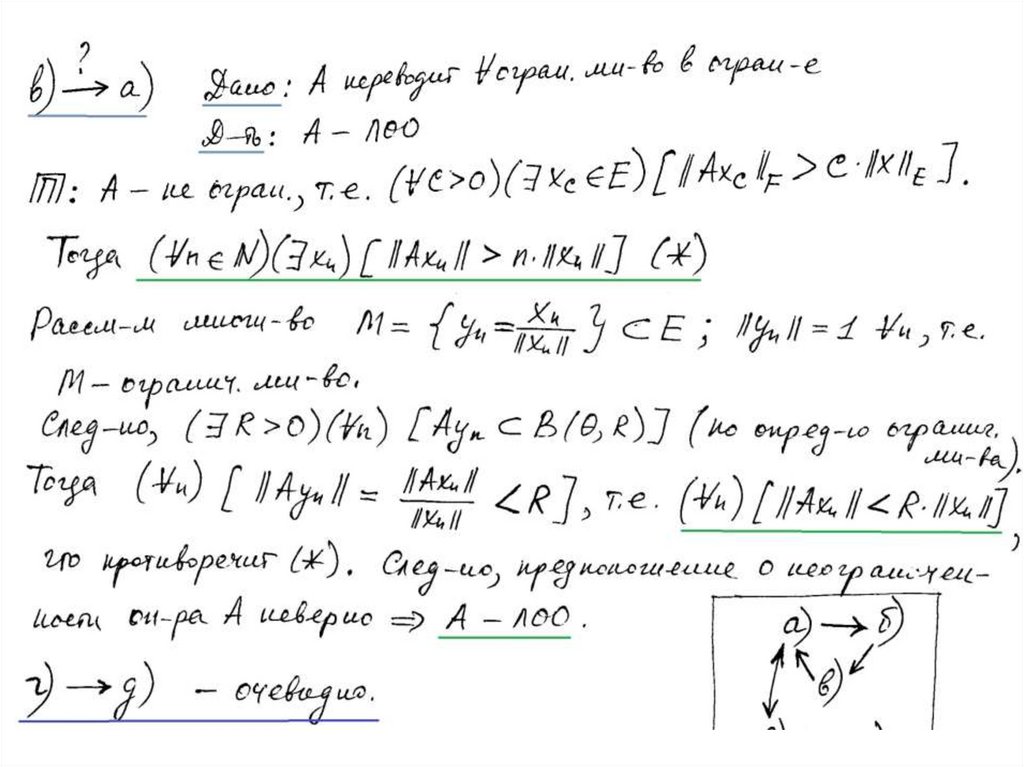 ?
в) → а) Дано: А переводит ∀ огран. мн-во в огран-е
Д-ть: А – ЛОО
П: А – не огран., т.е. (∀C>0)(∃x_C∈E)[‖Ax_C‖_F > C·‖x‖_E].
Тогда (∀n∈N)(∃x_n)[‖Ax_n‖ > n·‖x_n‖] (*)
Рассм-м множ-во M = {y_n = x_n/‖x_n‖} ⊂ E; ‖y_n‖ = 1 ∀n, т.е.
M – огранич. мн-во.
След-но, (∃R>0)(∀n) [Ay_n ⊂ B(θ,R)] (по опред-ю огранич.
мн-ва).
Тогда (∀n) [‖Ay_n‖ = ‖Ax_n‖/‖x_n‖ < R], т.е. (∀n)[‖Ax_n‖ < R·‖x_n‖],
что противоречит (*). След-но, предположение о неограничен-
ности оп-ра А неверно ⇒ А – ЛОО.
а) → б)
в)
г) → д) – очевидно.